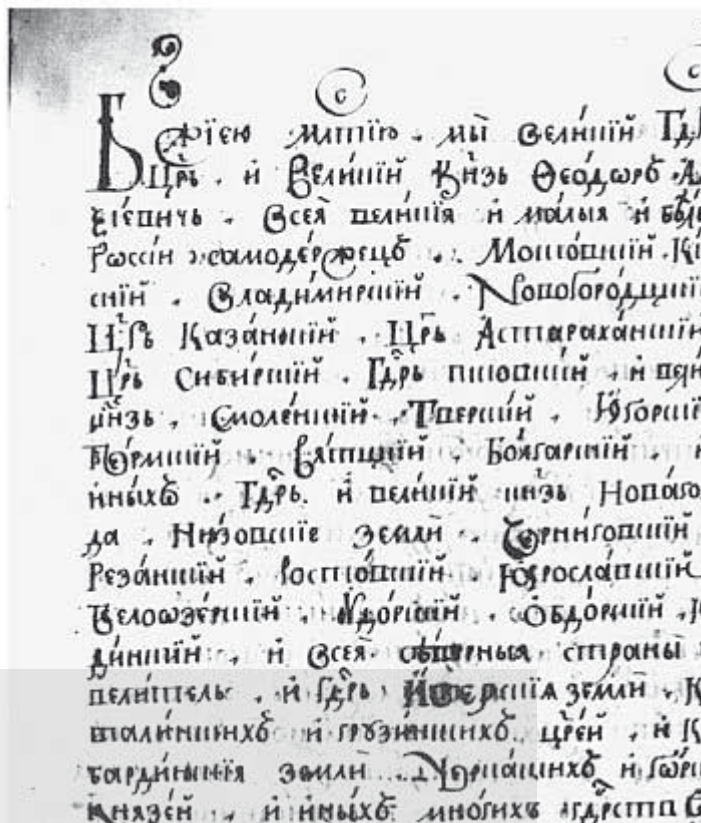 Бж҃їею млтїю . мы̀ вели́кїй Гдр҃
Цр҃ь . и҆ Вели́кїй Кн҃зь Ѳео́дωръ А
ѯі́евичь . Всея̀ вели́кїя и҆ ма́лыя и҆ бѣ́л
Рωссі́и самоде́ржецъ . Моско́вскїй . Кі́
скїй . Влади́мирскїй . Новогоро́дцкїй
Цр҃ь Каза́нскїй . Цр҃ь А҆страха́нскїй
Цр҃ь Сиби́рскїй . Гдр҃ь псковскі́й . и҆ вели́
кн҃зь . Смоле́нскїй . Тверскі́й . Ю҆го́рскїй
Пе́рмскїй . Вя́тцкїй . Бо́лгарскїй . и҆
и҆ны́хъ . Гдр҃ь . и҆ вели́кїй кн҃зь Нова́го
да . Низо́вскїе земли́ . Черни́говскїй
Реза́нскїй . Росто́вскїй . Яросла́вскїй
Белоωзе́рскїй . Ѹ҆до́рскїй . Ѻ҆бдо́рскїй . К
ди́нскїй . и҆ всея̀ сѣ́верныя страны̀
вели́тель . и҆ Гдр҃ь И҆́верскїя земли́ . К
тали́нскихъ и҆ грузи́нскихъ цр҃е́й . и҆ К
барди́нскїя земли́ . Черка́скихъ и҆ го́рс
князе́й . и҆ и҆ны́хъ мно́гихъ гдр҃ствъ